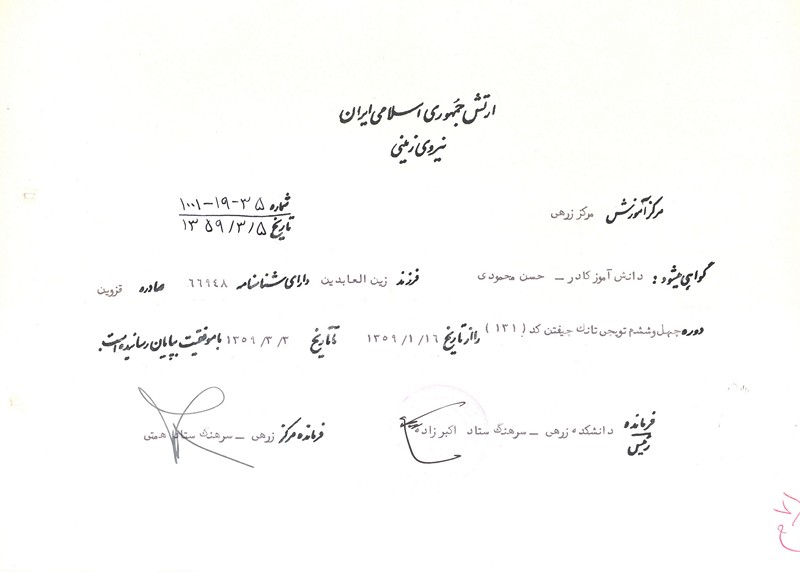 ارتش جمهوری اسلامی ایران
نیروی زمینی
شماره ۳۵-۱۹-۱۰۰۱
تاریخ ۱۳۵۹/۳/۵
مرکز آموزش مرکز زرهی
گواهی میشود : دانش آموز کادر – حسن محمودی فرزند زین العابدین دارای شناسنامه ۶۶۹۴۸ صادره قزوین
دوره چهل وششم توپچی تانك چیفتن کد (۱۳۱) را از تاریخ ۱۳۵۹/۱/۱۶ تا تاریخ ۱۳۵۹/۳/۳ با موفقیت بپایان رسانیده است.
فرمانده رئیس دانشکده زرهی – سرهنگ ستاد اکبرزاده
فرمانده مرکز زرهی – سرهنگ ستاد همتی